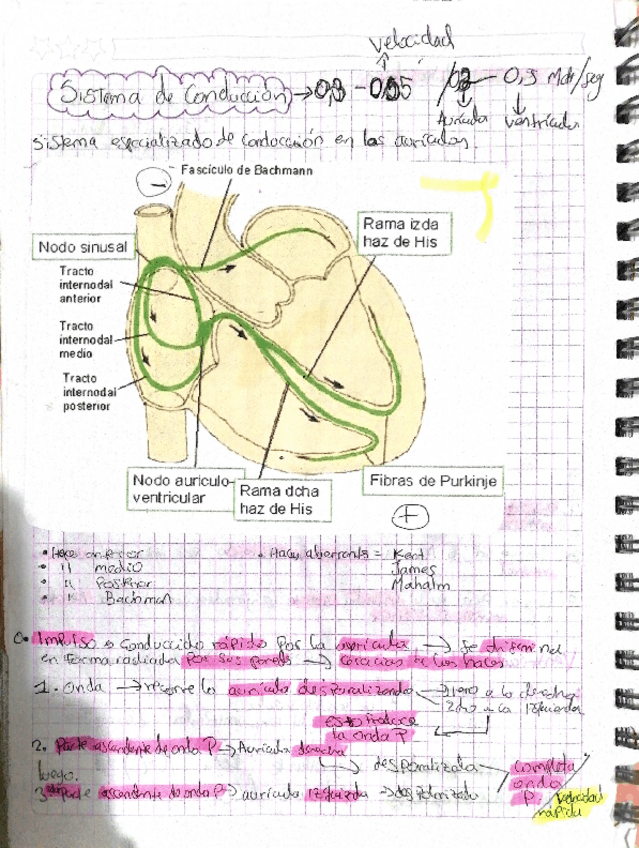 velocidad
Sistema de Conducción → 0,3 - 0,5 Mtr/seg
Aurícula ventrículo
Sistema especializado de conducción en las aurículas.
Fascículo de Bachmann
Rama izda
haz de His
Nodo sinusal
Tracto
internodal
anterior
Tracto
internodal
medio
Tracto
internodal
posterior
Nodo aurículo-
ventricular
Rama dcha
haz de His
Fibras de Purkinje
+
• Haces anterior
• " medio
• " Posterior
• " Bachman
• Haces aberrants = Kent
James
Mahaim
0. Impulso es conducido rápido por la aurícula → Se
en forma radiada por sus pareds → gracias a los haces
1. Onda → recorre la aurícula despolarizando → 1ero a la derecha
2do a la izquierda
esto produce
la onda P
2. Parte ascendente de onda P → Aurícula derecha
→ despolarizada
luego.
3. Parte ascendente de onda P → aurícula izquierda → despolarizada
completa
onda
P.
velocidad
rápida